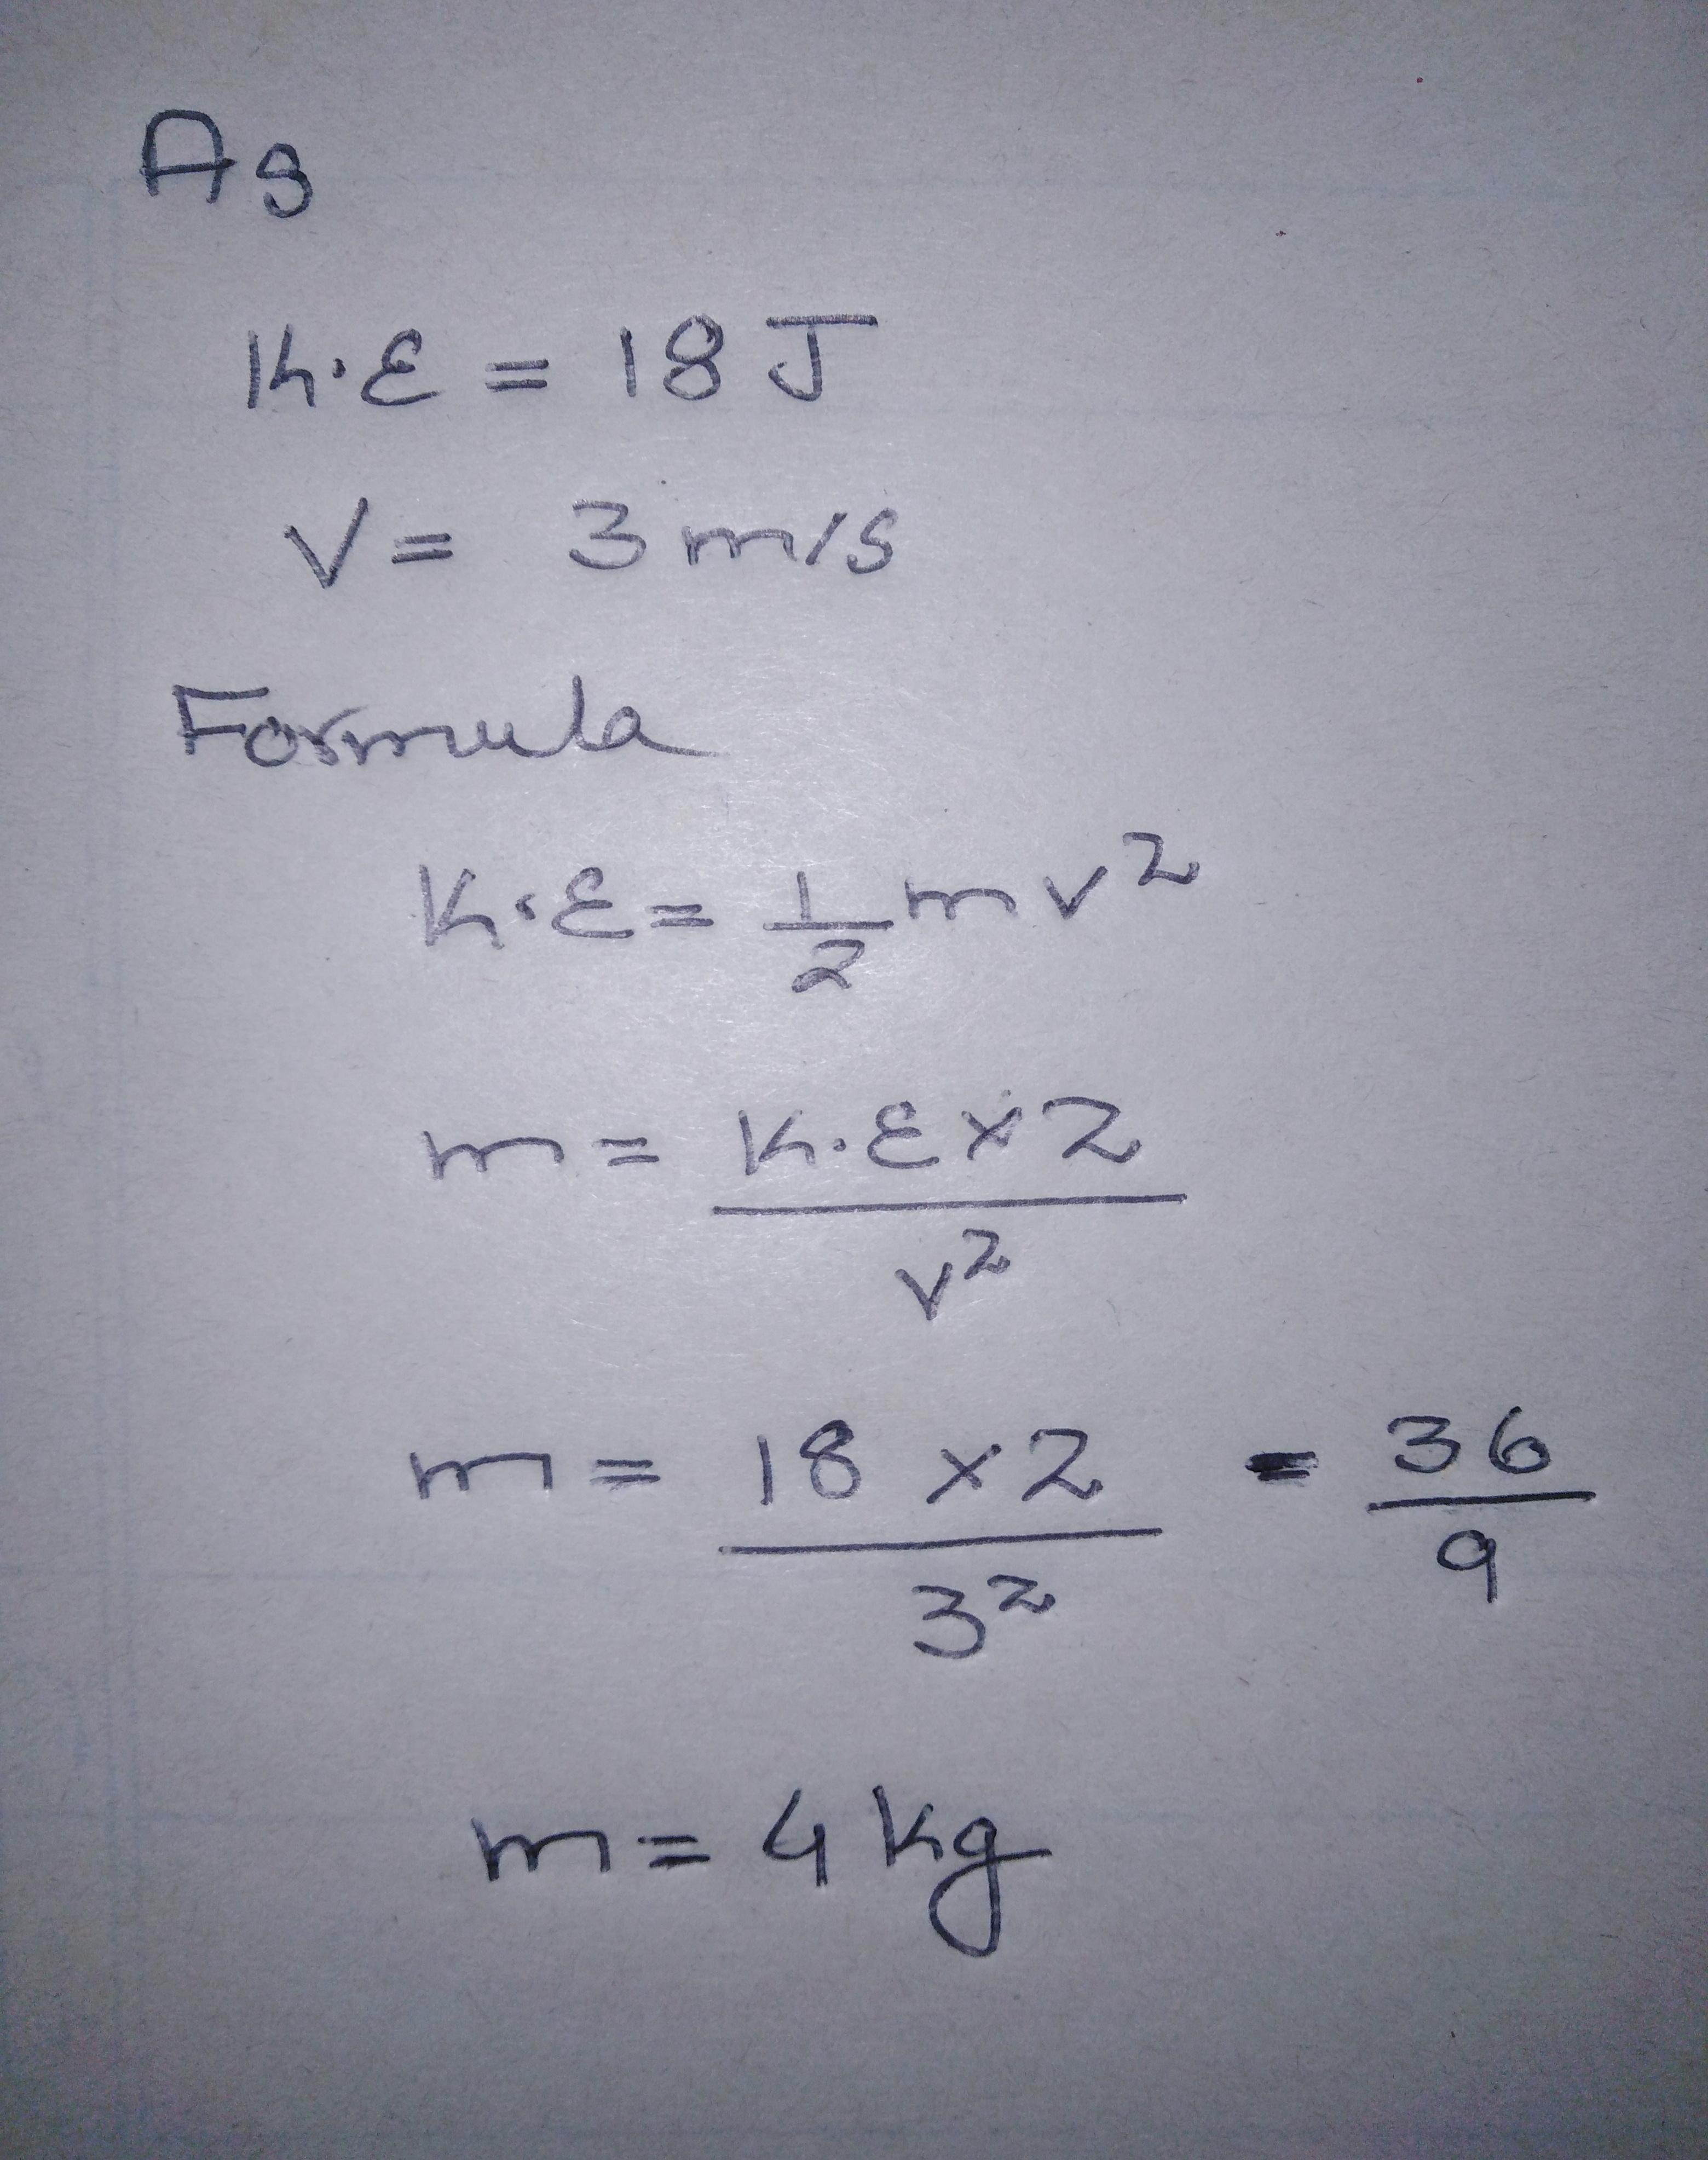 As
K.E = 18 J
V = 3 m/s
Formula
K.E = 1/2 mv²
m = K.E×2 / v²
m = 18 ×2 / 3² = 36 / 9
m = 4 kg